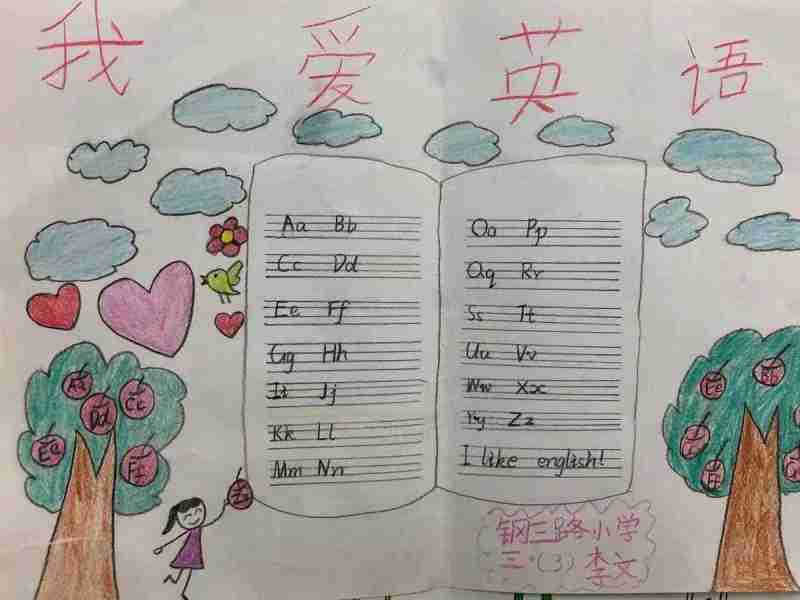 我 爱 英 语
Aa Bb
Cc Dd
Ee Ff
Gg Hh
Ii Jj
Kk Ll
Mm Nn
Oo Pp
Qq Rr
Ss Tt
Uu Vv
Ww Xx
Yy Zz
I like english!
Aa
Cc
Dd
Ee
Ff
Bb
钢三路小学
三·(3) 李文